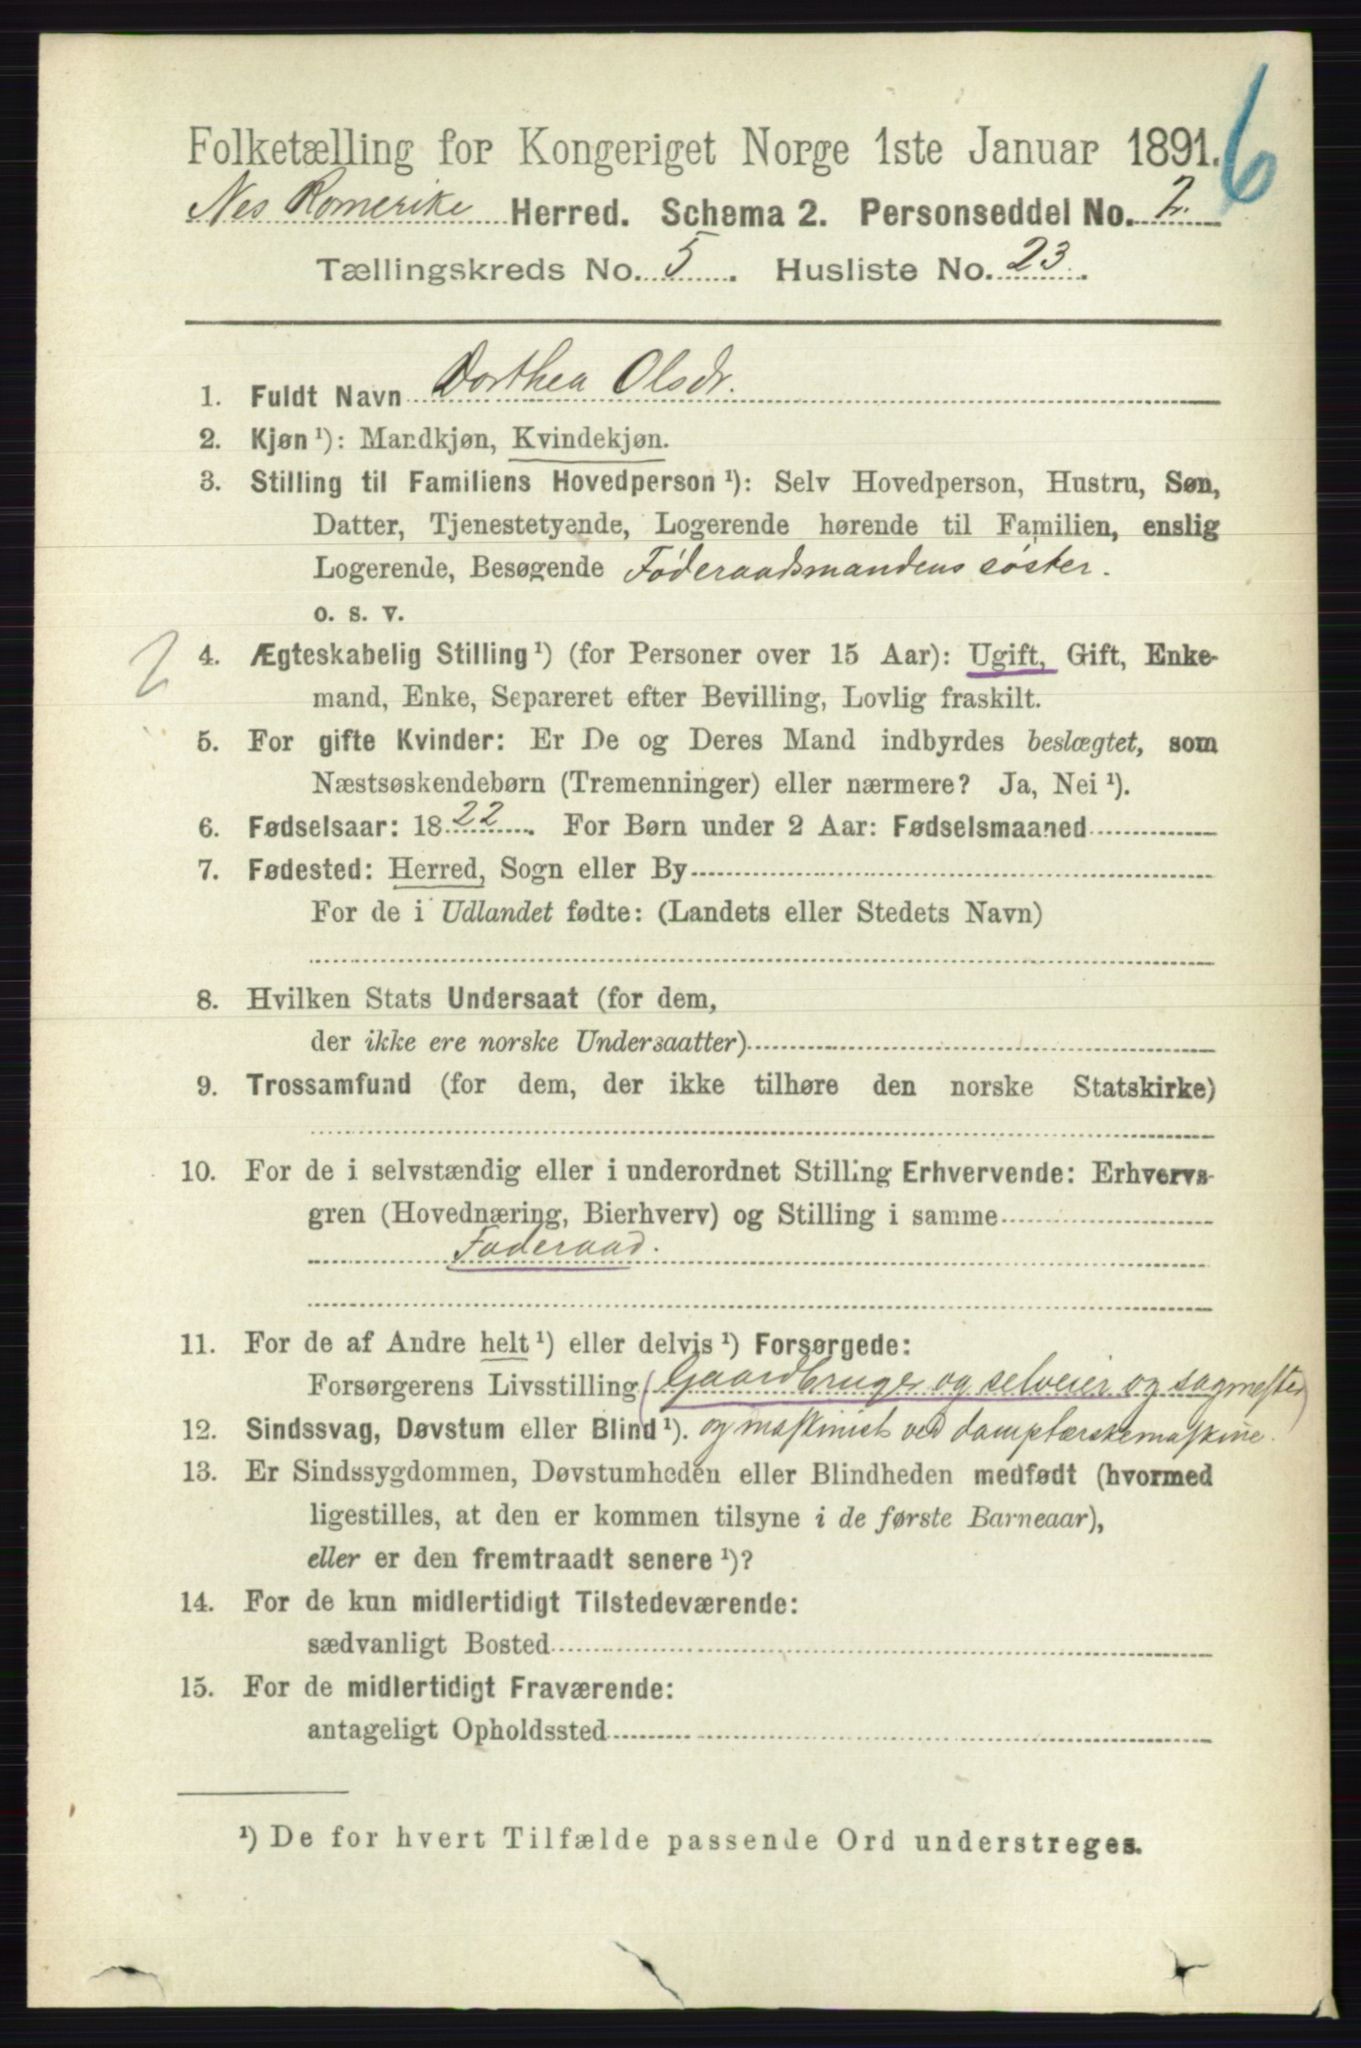 6
Folketælling for Kongeriget Norge 1ste Januar 1891.
Nes Romerike Herred. Schema 2. Personseddel No. 2.
Tællingskreds No. 5. Husliste No. 23.
1. Fuldt Navn Dorthea Olsdr.
2. Kjøn ¹): Mandkjøn, Kvindekjøn.
3. Stilling til Familiens Hovedperson ¹): Selv Hovedperson, Hustru, Søn,
Datter, Tjenestetyende, Logerende hørende til Familien, enslig
Logerende, Besøgende Føderaadsmandens søster.
o. s. v.
2 4. Ægteskabelig Stilling ¹) (for Personer over 15 Aar): Ugift, Gift, Enke-
mand, Enke, Separeret efter Bevilling, Lovlig fraskilt.
5. For gifte Kvinder: Er De og Deres Mand indbyrdes beslægtet, som
Næstsøskendebørn (Tremenninger) eller nærmere? Ja, Nei ¹).
6. Fødselsaar: 1822. For Børn under 2 Aar: Fødselsmaaned
7. Fødested: Herred, Sogn eller By
For de i Udlandet fødte: (Landets eller Stedets Navn)
8. Hvilken Stats Undersaat (for dem,
der ikke ere norske Undersaatter)
9. Trossamfund (for dem, der ikke tilhøre den norske Statskirke)
10. For de i selvstændig eller i underordnet Stilling Erhvervende: Erhvervs-
gren (Hovednæring, Bierhverv) og Stilling i samme
Føderaad.
11. For de af Andre helt ¹) eller delvis ¹) Forsørgede:
Forsørgerens Livsstilling (Gaardbruger og selveier og sagmester)
12. Sindssvag, Døvstum eller Blind ¹). og maskinist ved damptærskemaskine.
13. Er Sindssygdommen, Døvstumheden eller Blindheden medfødt (hvormed
ligestilles, at den er kommen tilsyne i de første Barneaar),
eller er den fremtraadt senere ¹)?
14. For de kun midlertidigt Tilstedeværende:
sædvanligt Bosted
15. For de midlertidigt Fraværende:
antageligt Opholdssted
¹) De for hvert Tilfælde passende Ord understreges.